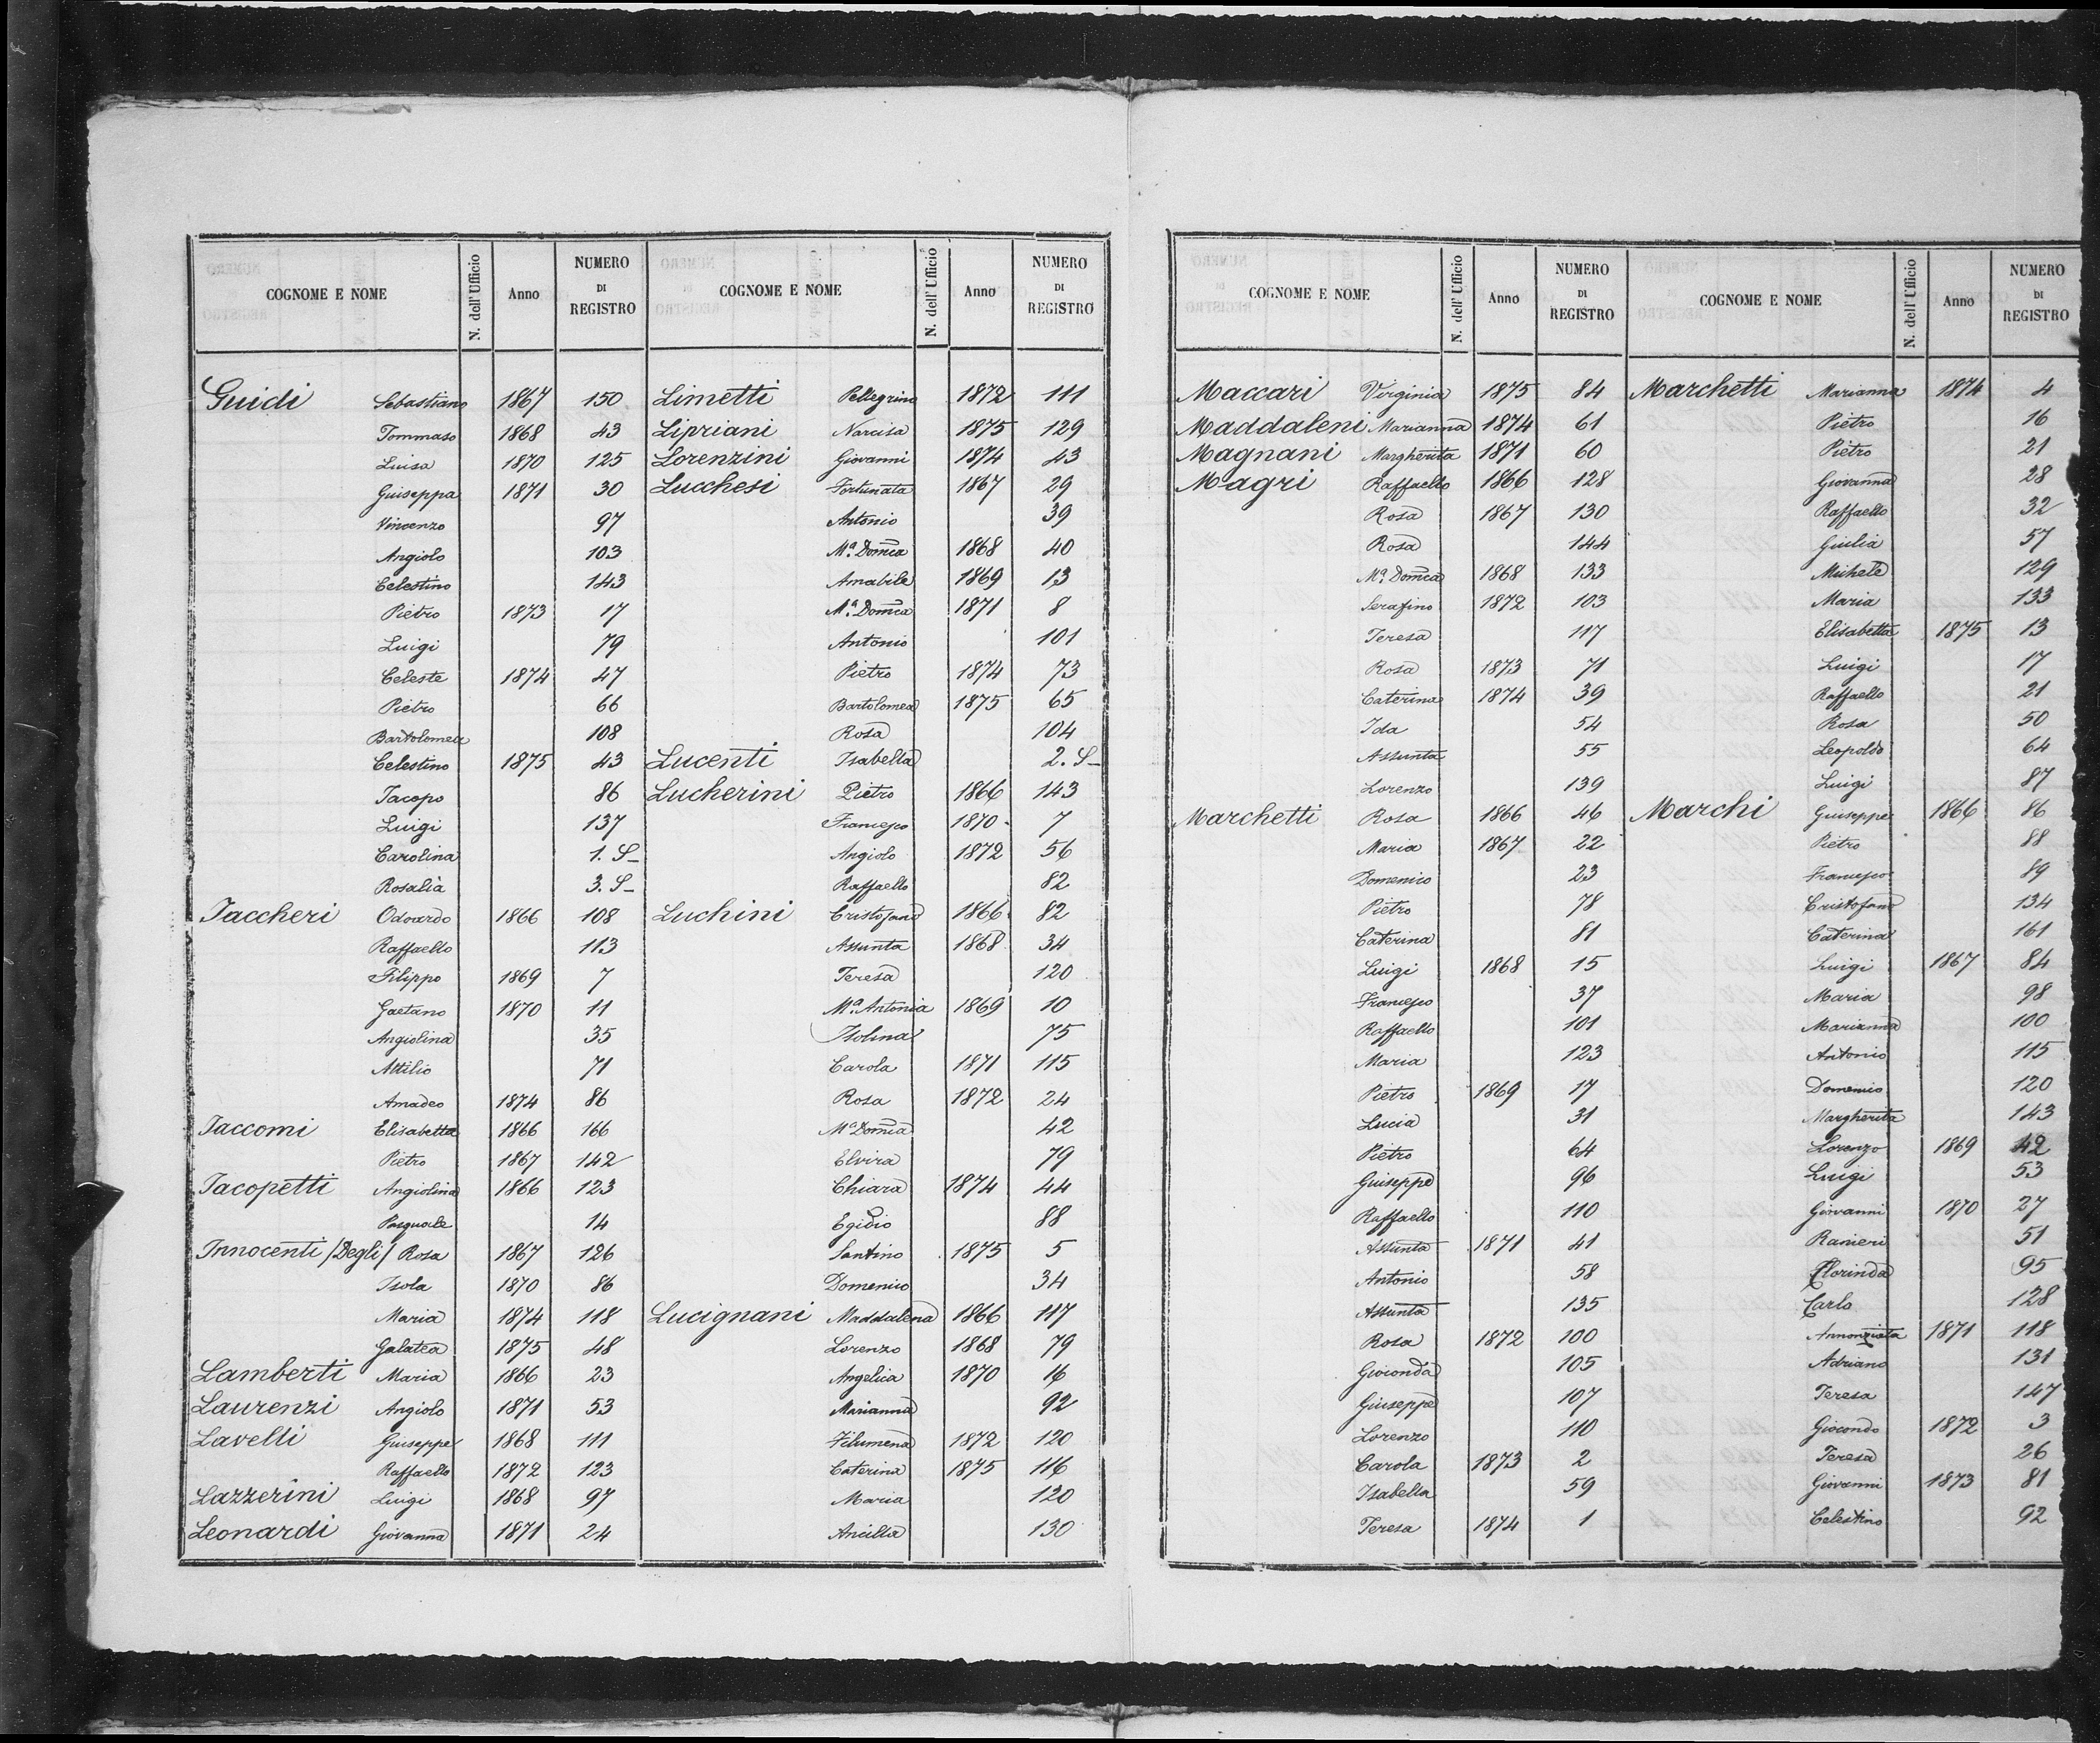 COGNOME E NOME N. dell' Ufficio Anno NUMERO DI REGISTRO
Guidi Sebastiano 1867 150
Tommaso 1868 43
Luisa 1870 125
Giuseppa 1871 30
Vincenzo 97
Angiolo 103
Celestino 143
Pietro 1873 17
Luigi 79
Celeste 1874 47
Pietro 66
Bartolomea 108
Celestino 1875 43
Jacopo 86
Luigi 137
Carolina 1. S-
Rosalia 3. S-
Jaccheri Odoardo 1866 108
Raffaello 113
Filippo 1869 7
Gaetano 1870 11
Angiolina 35
Attilio 71
Amadeo 1874 86
Jaccomi Elisabetta 1866 166
Pietro 1867 142
Jacopetti Angiolina 1866 123
Pasquale 14
Innocenti /Degli/ Rosa 1867 126
Isola 1870 86
Maria 1874 118
Galatea 1875 48
Lamberti Maria 1866 23
Laurenzi Angiolo 1871 53
Lavelli Giuseppe 1868 111
Raffaello 1872 123
Lazzerini Luigi 1868 97
Leonardi Giovanna 1871 24
COGNOME E NOME N. dell' Ufficio Anno NUMERO DI REGISTRO
Limetti Pellegrino 1872 111
Lipriani Narcisa 1875 129
Lorenzini Giovanni 1874 43
Lucchesi Fortunata 1867 29
Antonio 39
Mª. Domca 1868 40
Amabile 1869 13
Mª. Domca 1871 8
Antonio 101
Pietro 1874 73
Bartolomea 1875 65
Rosa 104
Lucenti Isabella 2. S-
Lucherini Pietro 1866 143
Francesco 1870 7
Angiolo 1872 56
Raffaello 82
Luchini Cristofano 1866 82
Assunta 1868 34
Teresa 120
Mª. Antonia 1869 10
Isolina 75
Carola 1871 115
Rosa 1872 24
Mª Domca 42
Elvira 79
Chiara 1874 44
Egidio 88
Santino 1875 5
Domenico 34
Lucignani Maddalena 1866 117
Lorenzo 1868 79
Angelica 1870 16
Marianna 92
Filumena 1872 120
Caterina 1875 116
Maria 120
Ancilla 130
COGNOME E NOME N. dell' Ufficio Anno NUMERO DI REGISTRO
Maccari Virginia 1875 84
Maddaleni Marianna 1874 61
Magnani Margherita 1871 60
Magri Raffaello 1866 128
Rosa 1867 130
Rosa 144
Mª. Domca 1868 133
Serafino 1872 103
Teresa 117
Rosa 1873 71
Caterina 1874 39
Ida 54
Assunta 55
Lorenzo 139
Marchetti Rosa 1866 46
Maria 1867 22
Domenico 23
Pietro 78
Caterina 81
Luigi 1868 15
Francesco 37
Raffaello 101
Maria 123
Pietro 1869 17
Lucia 31
Pietro 64
Giuseppe 96
Raffaello 110
Assunta 1871 41
Antonio 58
Assunta 135
Rosa 1872 100
Gioconda 105
Giuseppe 107
Lorenzo 110
Carola 1873 2
Isabella 59
Teresa 1874 1
COGNOME E NOME N. dell' Ufficio Anno NUMERO DI REGISTRO
Marchetti Marianna 1874 4
Pietro 16
Pietro 21
Giovanna 28
Raffaello 32
Giulia 57
Michele 129
Maria 133
Elisabetta 1875 13
Luigi 17
Raffaello 21
Rosa 50
Leopoldo 64
Luigi 87
Marchi Giuseppe 1866 86
Pietro 88
Francesco 89
Cristofano 134
Caterina 161
Luigi 1867 84
Maria 98
Marianna 100
Antonio 115
Domenico 120
Margherita 143
Lorenzo 1869 42
Luigi 53
Giovanni 1870 27
Ranieri 51
Clorinda 95
Carlo 128
Annonziata 1871 118
Adriano 131
Teresa 147
Giocondo 1872 3
Teresa 26
Giovanni 1873 81
Celestino 92